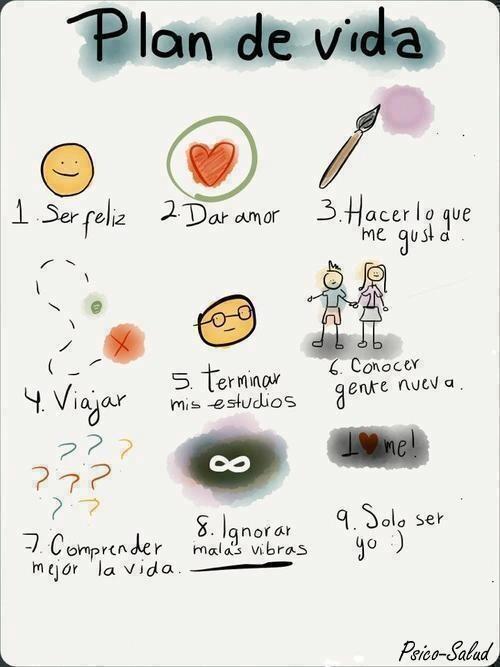 Plan de vida
1. Ser feliz
2. Dar amor
3. Hacer lo que
me gusta.
4. Viajar
5. terminar
mis estudios
6. Conocer
gente nueva.
? ? ?
? ? ?
? ?
7. Comprender
mejor la vida.
∞
8. Ignorar
malas vibras
I ♥ me!
9. Solo ser
yo :)
Psico-Salud